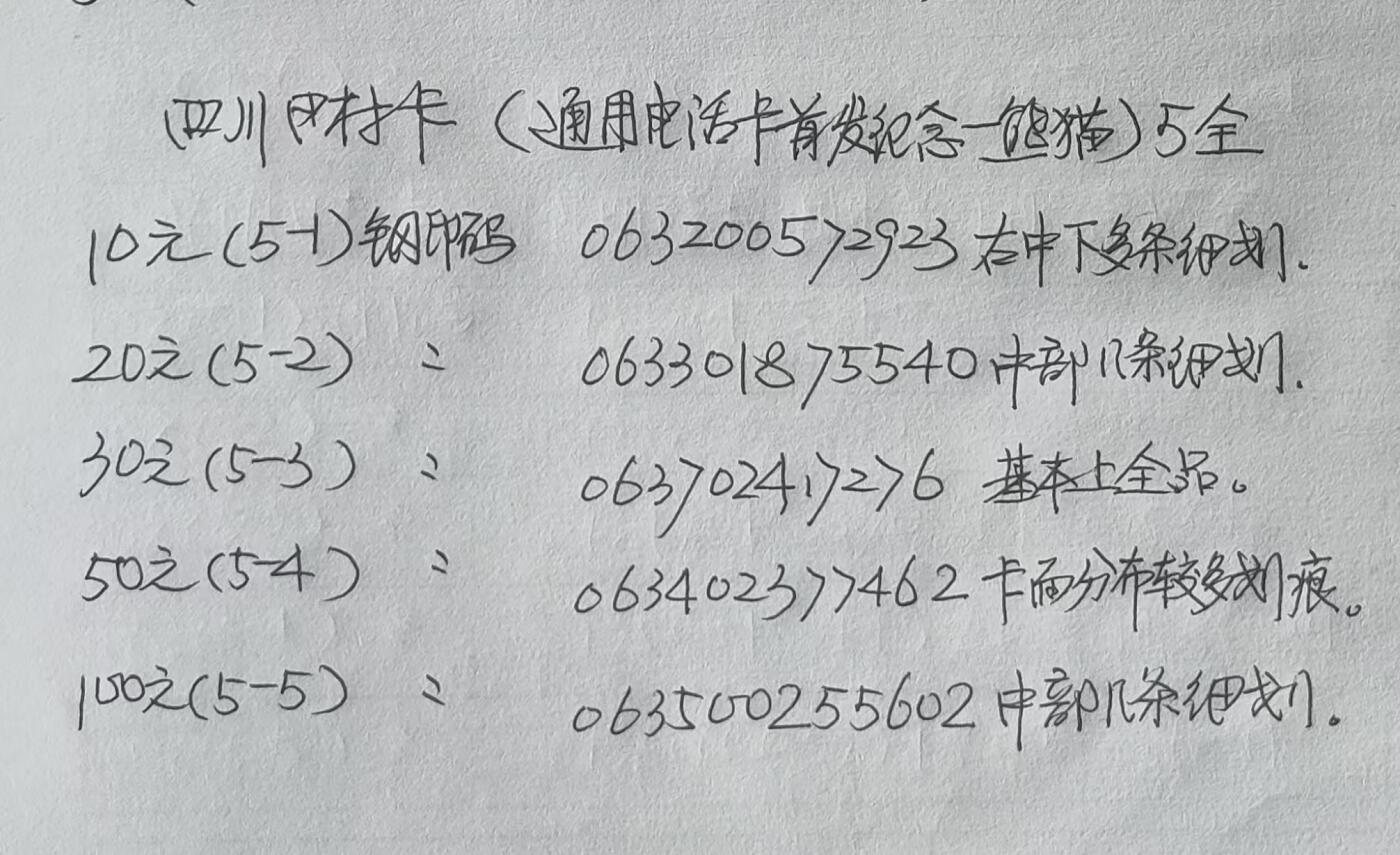 四川田村卡（通用电话卡首发纪念一熊猫）5全
10元（5-1）钢印码 063200572923右中下多条细划.
20元（5-2） 〃 063301875540中部几条细划.
30元（5-3） 〃 063702417276 基本上全品。
50元（5-4） 〃 063402377462 卡面分布较多划痕。
100元（5-5） 〃 063500255602 中部几条细划。